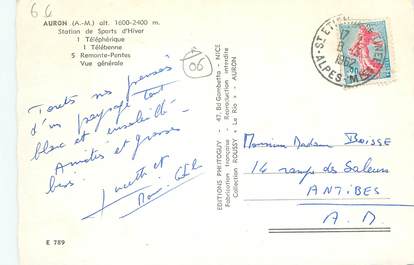 66
AURON (A.-M.) alt. 1600-2400 m.
Station de Sports d'Hiver
1 Téléphérique
1 Télébenne
5 Remonte-Pentes
Vue générale
06
Toutes nos pensées
d'un paysage tout
blanc et ensoleillé
Amitiés et grosses
bises
E 789
EDITIONS PHOTOGUY - 47, Bd Gambetta - NICE
Fabrication française - Reproduction interdite
Collection ROUSSY « Le Rio » - AURON
ST ETIENNE
1962
ALPES-MMES
Monsieur Madame BOISSE
14 rampe des Saleurs
ANTIBES
A.M